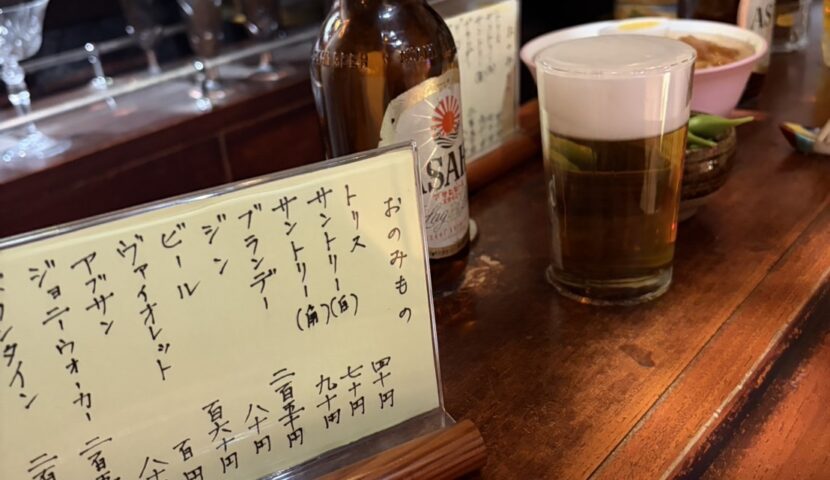 おのみもの
トリス 四十円
サントリー(白) 七十円
サントリー(角) 九十円
ブランデー 二百五十円
ジン 八十円
ビール 百六十円
ヴァイオレット 百円
アブサン 八十
ジョニーウォーカー 二百五
ランタイン 二百
ASAH
Lag
AS